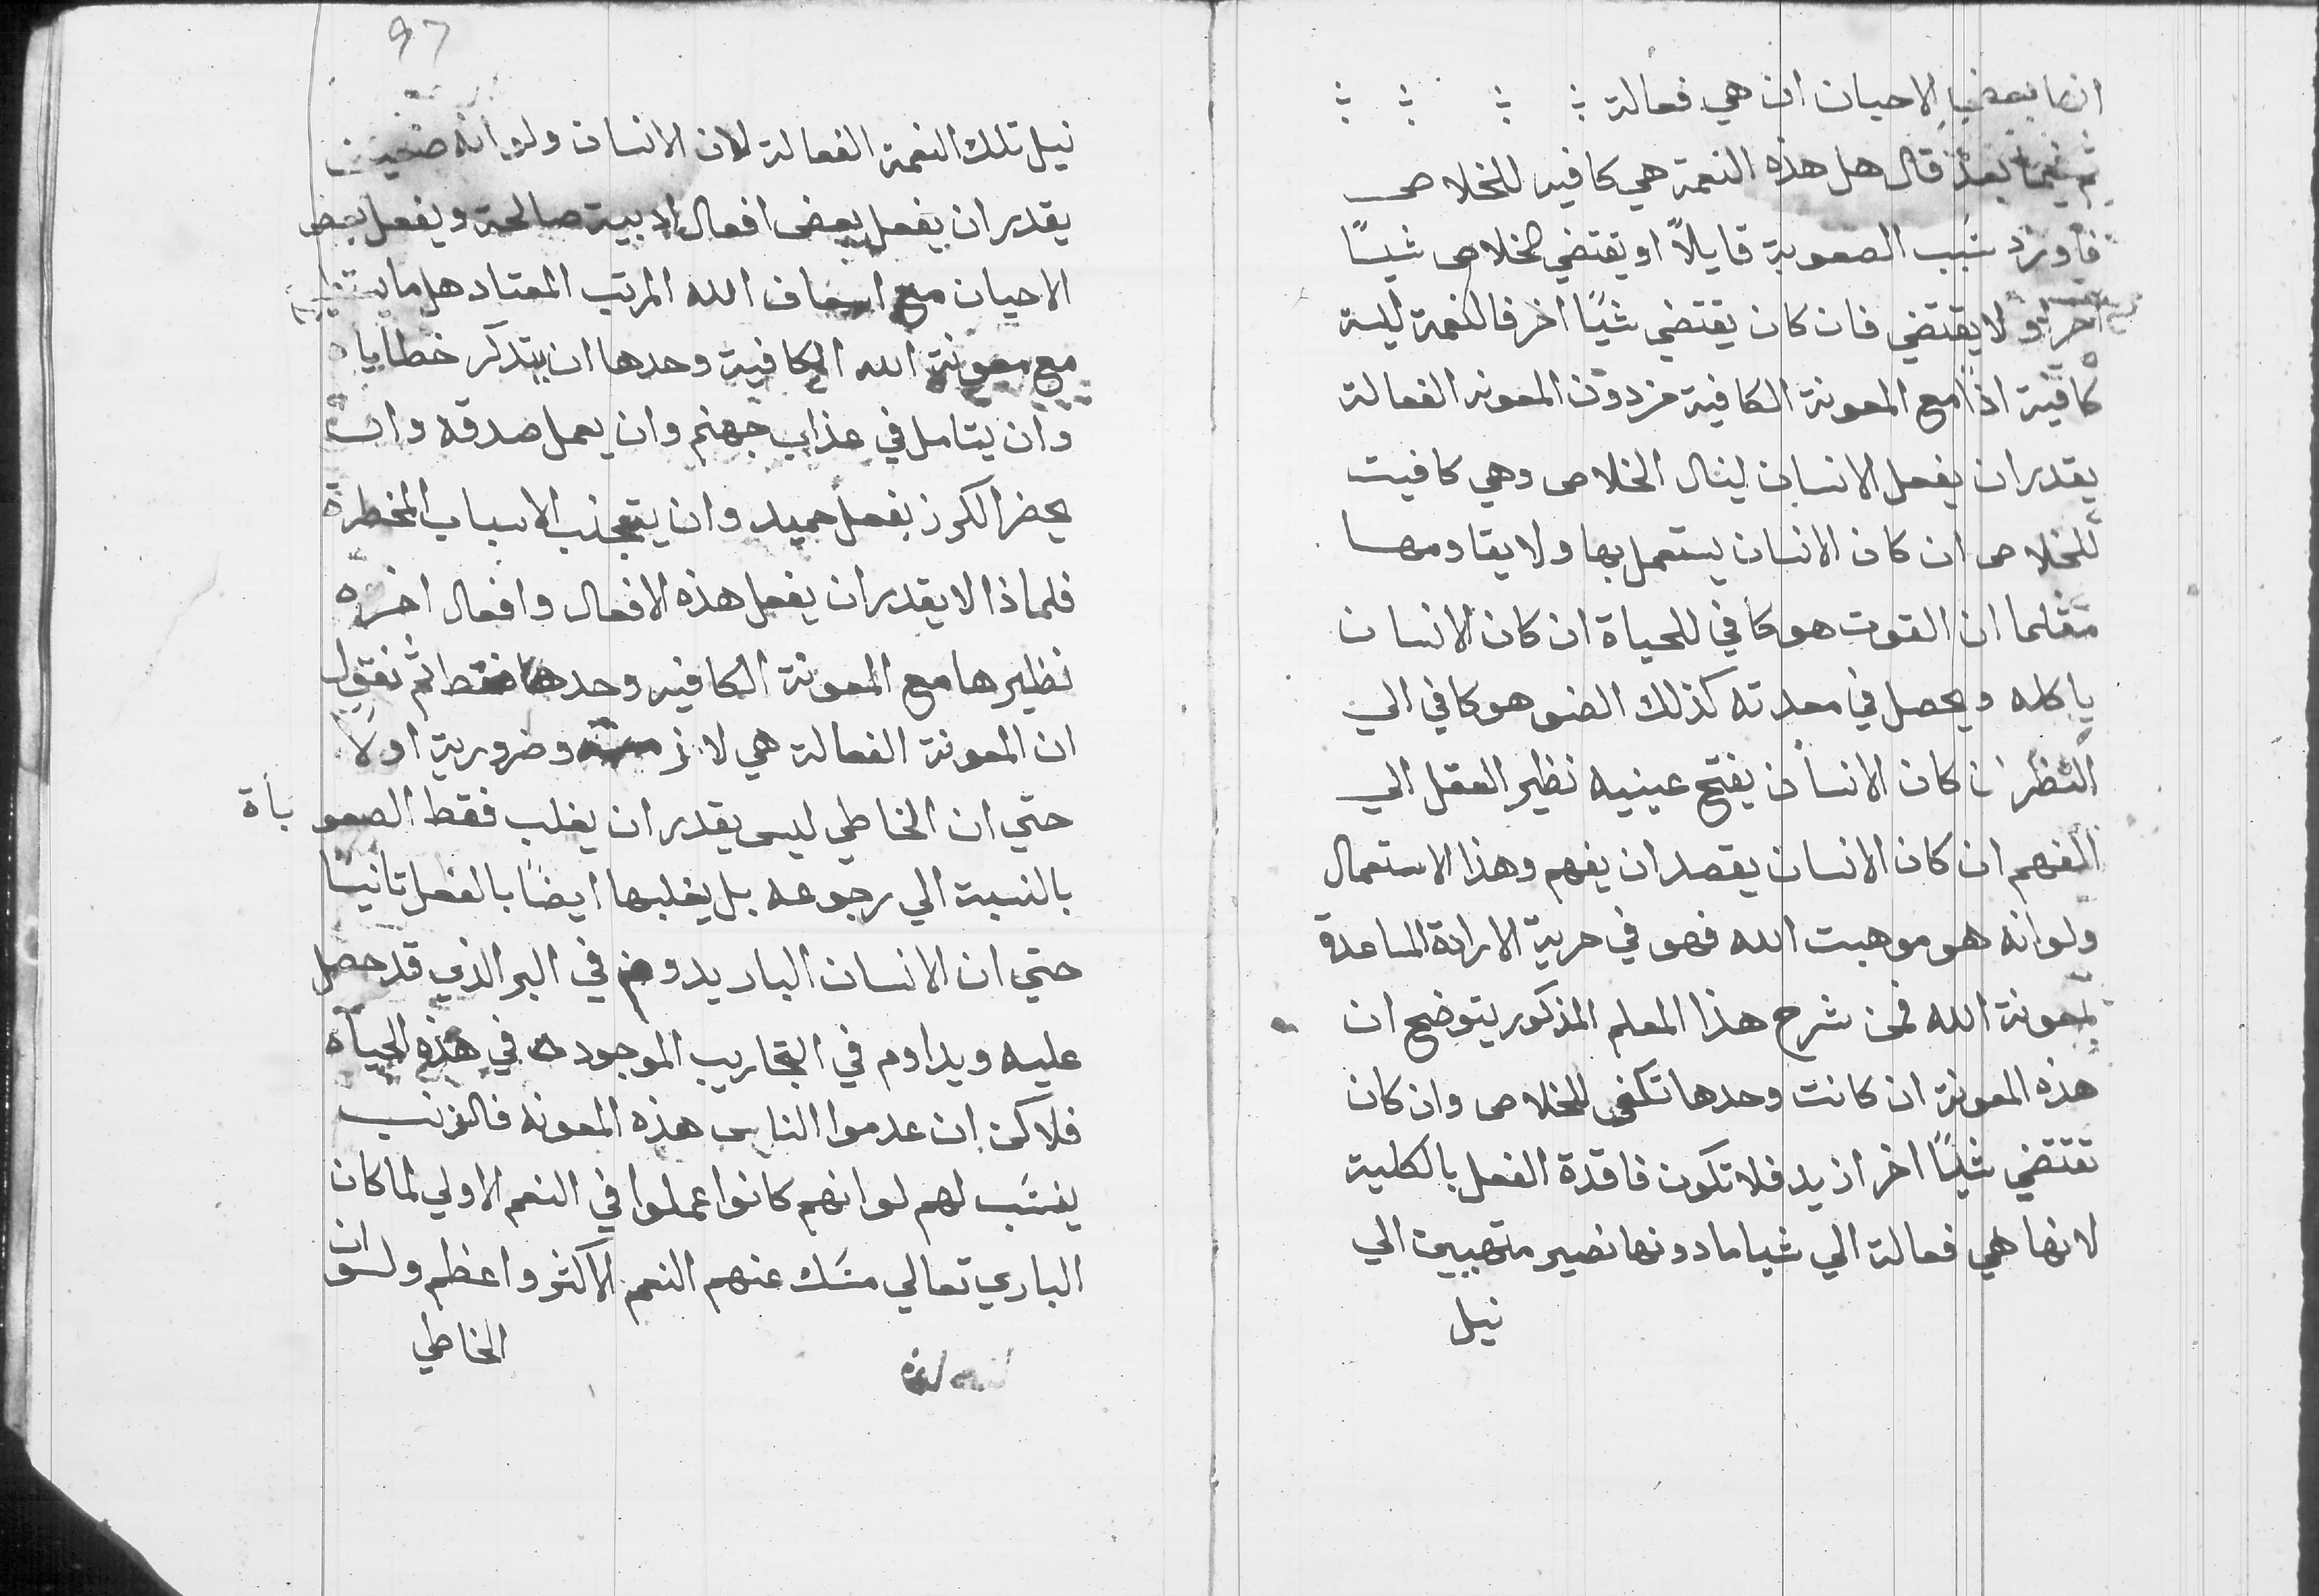 انها بعض الاحيان ان هي فعالة
ثم فيما بعد قال هل هذه النعمة هي كافيه للخلاص
فأورد سَبب الصعوبة قايلاً او يقتضي للخلاص شيئًا
اخر او لا يقتضي فان كان يقتضي شيًا اخر فالنعمة ليسة
كافية اذًا مع المعونة الكافية من دون المعونه الفعالة
يقدر ان يفعل الانسان لينال الخلاص وهي كافيت
للخلاص ان كان الانسان يستعمل بها ولا يقاومها
مثلما ان القوت هو كافي للحياة ان كان الانسان
ياكله ويحصل في معدته كذلك الضو هو كافي الي
النظر ان كان الانسان يفتح عينيه نظير العقل الي
الفهم ان كان الانسان يقصد ان يفهم وهذا الاستعمال
ولو انه هو موهبت الله فهو في حرية الارادة المساعدة
بمعونة الله فمن شرح هذا المعلم المذكور يتوضح ان
هذه المعونة ان كانت وحدها تكفي للخلاص وان كان
تقتضي شيئًا اخر ازيد فلا تكون فاقدة الفعل بالكلية
لانها هي فعالة الي شيا ما دونها نصير متهيين الي
نيل
97
نيل تلك النعمة الفعالة لان الانسان ولو انه ضعيف
يقدر ان يفعل بعض افعال ادبية صالحة ويفعل بعض
الاحيان مع اسعاف الله المرتب المعتاد هل ما يستطيع
مع معونة الله الكافية وحدها ان يتذكر خطاياه
وان يتامل في عذاب جهنم وان يعمل صدقه وان
يحضر الكرز بفعل حميد وان يتجنب الاسباب المخطرة
فلماذا لا يقدر ان يفعل هذه الافعال وافعال اخره
نظيرها مع المعونة الكافيه وحدها فقط ثم نقول
ان المعونة الفعالة هي لازمة وضرورية اولاً
حتي ان الخاطي ليس يقدر ان يغلب فقط الصعوباة
بالنسبة الي رجوعه بل يغلبها ايضًا بالفعل ثانيًا
حتي ان الانسان البار يدوم في البر الذي قد حصل
عليه ويداوم في التجاريب الموجوده في هذه الحياة
فلاكن ان عدموا الناس هذه المعونه فالذنب
ينسَب لهم لو انهم كانوا عملوا في النعم الاولي لما كان
الباري تعالي مسَك عنهم النعم الاكثر واعظم ولو ان
الخاطي